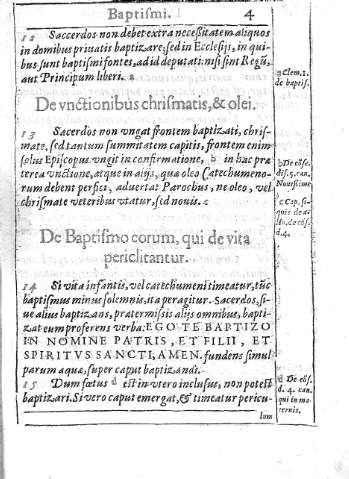 Baptismi. 4
12 Saccerdos non debet extra necessitatem aliquos
in domibus priuatis baptizare; sed in Ecclesijs, in qui-
bus sunt baptismi fontes, ad id deputati: nisi sint Regū,
aut Principum liberi. a
a Clem. 1.
de baptis.
De vnctionibus chrismatis, & olei.
13 Sacerdos non vngat frontem baptizati, chris-
mate, sed tantum summitatem capitis, frontem enim
solus Episcopus vngit in confirmatione, b in hac præ
terea vnctione, atque in alijs, qua oleo Catechumeno-
rum debent perfici, aduertat Parochus, ne oleo, vel
chrismate veteribus vtatur, sed nouis. c
b De cōse.
dist. 5. can.
Nouissime
c Cap. si-
quis de a
lio. de cōs
d. 4.
De Baptismo eorum, qui de vita
periclitantur.
14 Si vita infantis, vel catechumeni timeatur, tūc
baptismus minus solemnis, ita peragitur. Sacerdos, si-
ue alius baptizans, pratermissis alijs omnibus, bapti-
zat eum proferens verba: EGO TE BAPTIZO
IN NOMINE PATRIS, ET FILII, ET
SPIRITVS SANCTI, AMEN. fundens simul
parum aquæ, super caput baptizandi.
15 Dum fœtus d est in vtero inclusus, non potest
baptizari. Si vero caput emergat, & timeatur pericu-
lum
d De cōs.
d. 4. can.
qui in ma-
ternis.